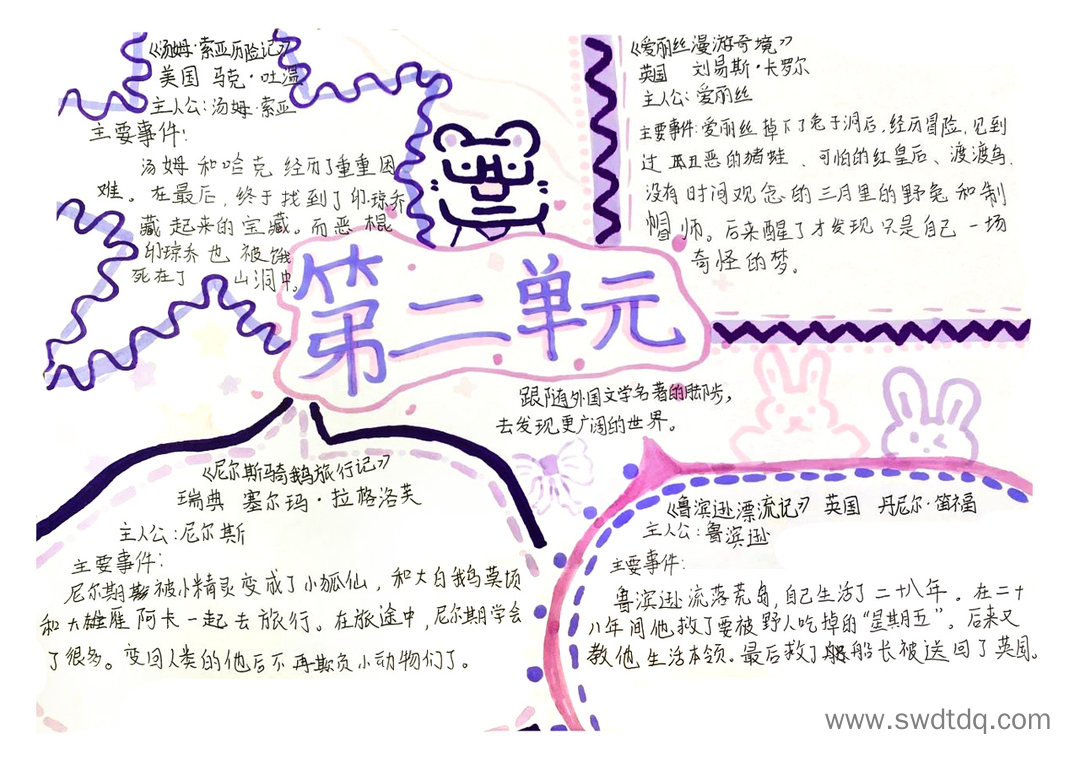 《汤姆·索亚历险记》
美国 马克·吐温
主人公:汤姆·索亚
主要事件:
汤姆和哈克经历了重重困
难。在最后,终于找到了印琼乔
藏起来的宝藏。而恶棍
印琼乔也被饿
死在了山洞中。
《爱丽丝漫游奇境》
英国 刘易斯·卡罗尔
主人公:爱丽丝
主要事件:爱丽丝掉下了兔子洞后,经历冒险,见到
过丑恶的猪娃、可怕的红皇后、渡渡鸟.
没有时间观念的三月里的野兔和制
帽师。后来醒了才发现只是自己一场
奇怪的梦。
第二单元
跟随外国文学名著的脚步,
去发现更广阔的世界。
《尼尔斯骑鹅旅行记》
瑞典 塞尔玛·拉格洛芙
主人公:尼尔斯
主要事件:
尼尔期被小精灵变成了小狐仙,和大白鹅莫顷
和大雄雁阿卡一起去旅行。在旅途中,尼尔期学会
了很多。变回人类的他后不再欺负小动物们了。
《鲁滨逊漂流记》 英国 丹尼尔·笛福
主人公:鲁滨逊
主要事件:
鲁滨逊流落荒岛,自己生活了二十八年。在二十
八年间他救了要被野人吃掉的“星期五”。后来又
教他生活本领。最后救了船长被送回了英国。
www.swdtdq.com